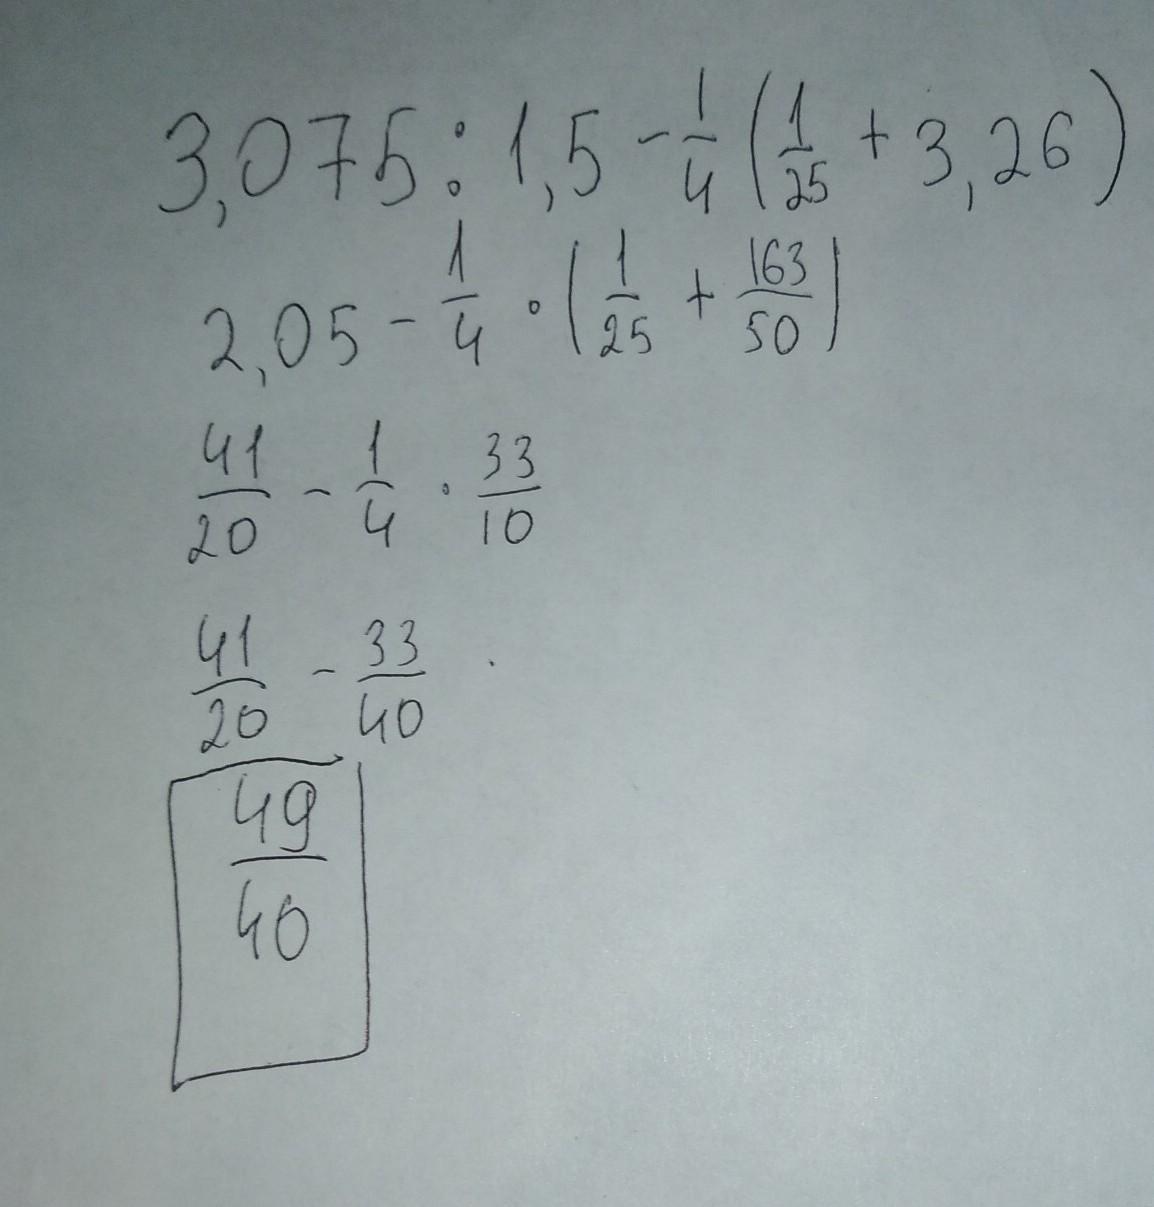 3,075 : 1,5 - 1/4 (1/25 + 3,26)
2,05 - 1/4 · (1/25 + 163/50)
41/20 - 1/4 · 33/10
41/20 - 33/40
49/40